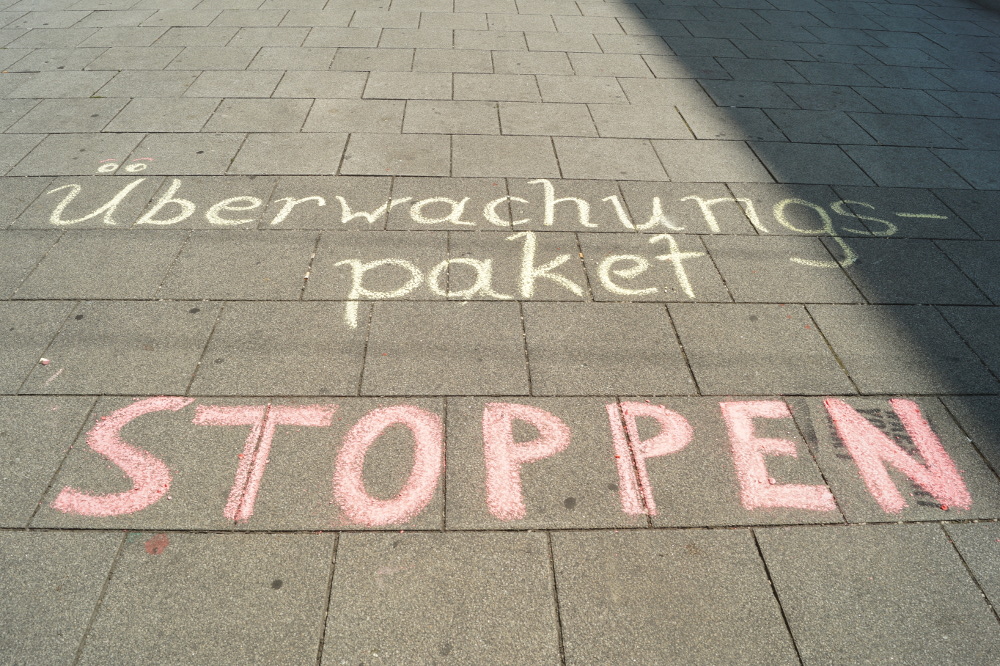 Überwachungs-
paket
STOPPEN